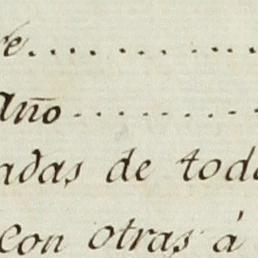 re..........
Año..........
adas de toda
con otras á